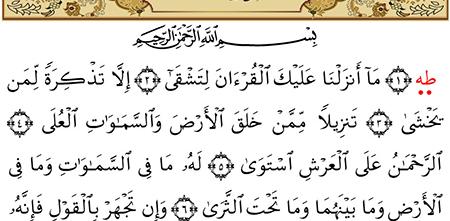 بِسْمِ ٱللَّهِ ٱلرَّحْمَٰنِ ٱلرَّحِيمِ
طه ﴿١﴾ مَآ أَنزَلْنَا عَلَيْكَ ٱلْقُرْءَانَ لِتَشْقَىٰٓ ﴿٢﴾ إِلَّا تَذْكِرَةً لِّمَن
يَخْشَىٰ ﴿٣﴾ تَنزِيلًا مِّمَّنْ خَلَقَ ٱلْأَرْضَ وَٱلسَّمَٰوَٰتِ ٱلْعُلَى ﴿٤﴾
ٱلرَّحْمَٰنُ عَلَى ٱلْعَرْشِ ٱسْتَوَىٰ ﴿٥﴾ لَهُۥ مَا فِى ٱلسَّمَٰوَٰتِ وَمَا فِى
ٱلْأَرْضِ وَمَا بَيْنَهُمَا وَمَا تَحْتَ ٱلثَّرَىٰ ﴿٦﴾ وَإِن تَجْهَرْ بِٱلْقَوْلِ فَإِنَّهُۥ